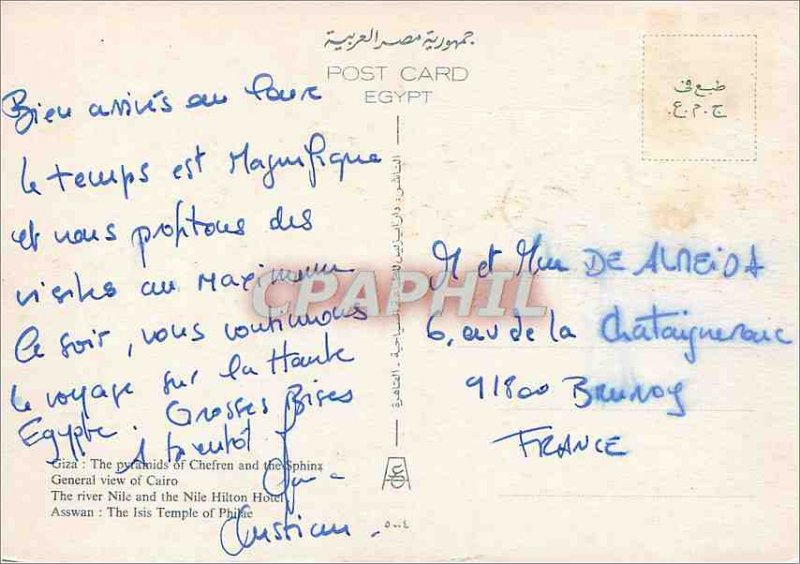 جمهورية مصر العربية
POST CARD
EGYPT
طبع فى
ج.م.ع.
Bien arrivés au Caire
le temps est Magnifique
et nous profitons des
visites au Maximum
Ce soir, nous continuons
le voyage sur la Haute
Egypte. Grosses Bises
A bientôt
Christian.
M et Mme DE ALMEIDA
6, av de la Chataigneraie
91800 BRUNOY
FRANCE
CPAPHIL
Giza : The pyramids of Chefren and the Sphinx
General view of Cairo
The river Nile and the Nile Hilton Hotel
Asswan : The Isis Temple of Philae
٥٠٠٤